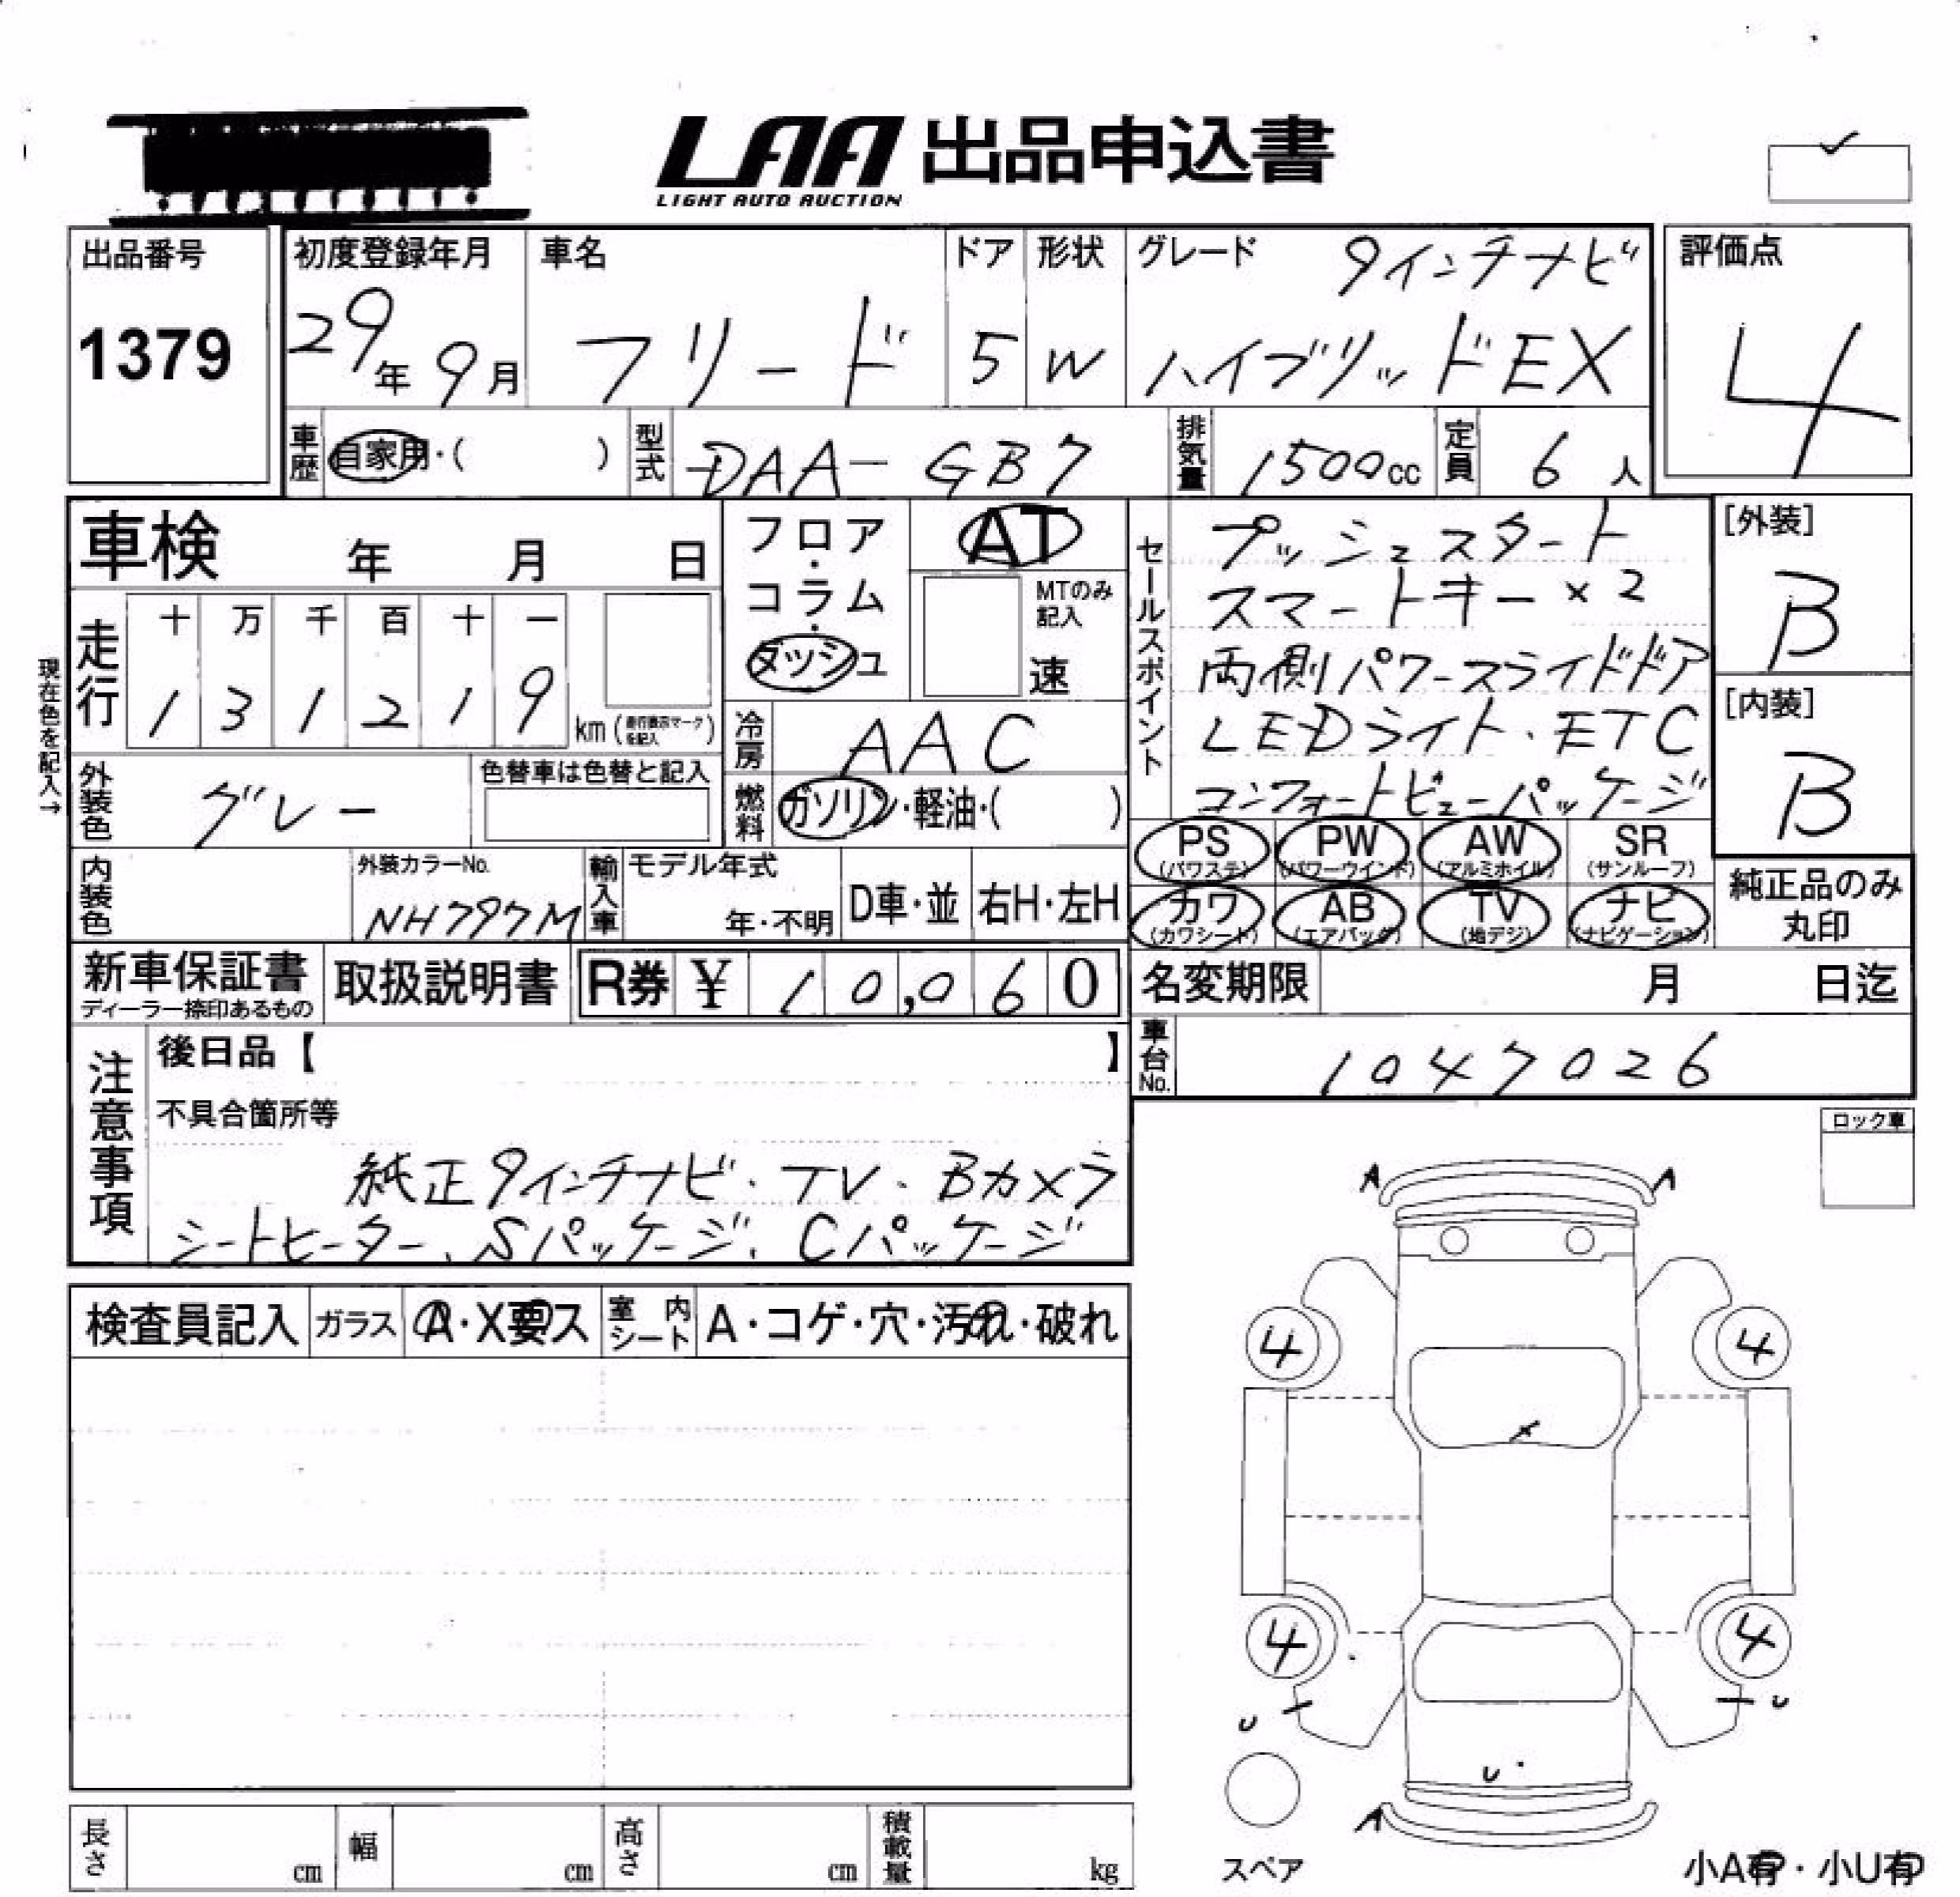 LAA 出品申込書
LIGHT AUTO AUCTION
出品番号
1379
初度登録年月
29年 9月
車名
フリード
ドア
5
形状
W
グレード
9インチナビ
ハイブリッドEX
評価点
4
車歴
自家用・( )
型式
DAA-GB7
排気量
1500cc
定員
6人
車検 年 月 日
フロア・
コラム・
ダッシュ
AT
MTのみ
記入
速
セールスポイント
プッシュスタート
スマートキー×2
両側パワースライドドア
LEDライト・ETC
コンフォートビューパッケージ
[外装]
B
[内装]
B
現在色を記入→
走行
十 万 千 百 十 一
1 3 1 2 1 9
km(走行表示マークを記入)
冷房
AAC
外装色
グレー
色替車は色替と記入
燃料
ガソリン・軽油・( )
PS
(パワステ)
PW
(パワーウインド)
AW
(アルミホイル)
SR
(サンルーフ)
カワ
(カワシート)
AB
(エアバッグ)
TV
(地デジ)
ナビ
(ナビゲーション)
純正品のみ
丸印
内装色
外装カラーNo.
NH797M
輸入車
モデル年式
年・不明
D車・並
右H・左H
新車保証書
ディーラー捺印あるもの
取扱説明書
R券 ¥ 10,060
名変期限 月 日迄
車台No.
1047026
注意事項
後日品【 】
不具合箇所等
純正9インチナビ・TV・Bカメラ
シートヒーター、Sパッケージ、Cパッケージ
ロック車
A A
検査員記入
ガラス
A・X要ス
室内シート
A・コゲ・穴・汚れ・破れ
4 4
X
4 4
U U
U
A
スペア
小A有・小U有
長さ cm
幅 cm
高さ cm
積載量 kg